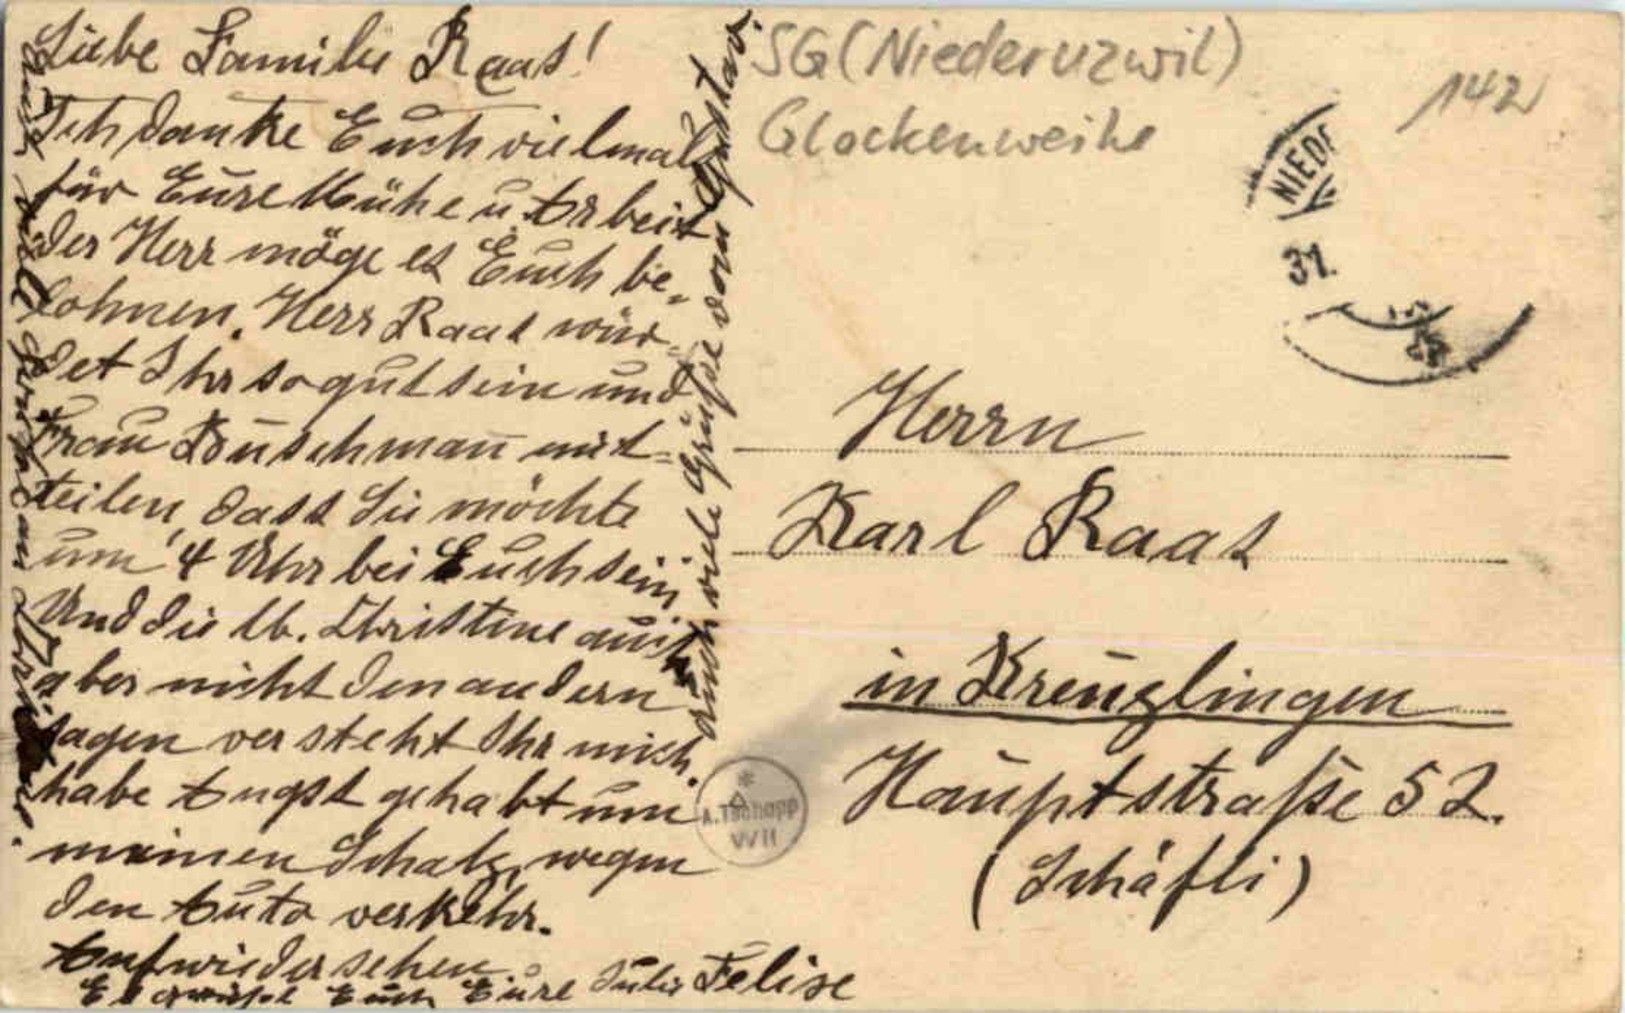 Liebe Familie Raas!
Ich danke Euch vielmals
für Eure Mühe u. Arbeit
der Herr möge es Euch be-
lohnen. Herr Raas wür-
det Ihr so gut sein und
Frau Buschman̄ mit-
teilen, dass Sie möchte
um 4 Uhr bei Euch sein,
Und die lb. Christine auch
aber nicht den andern
sagen versteht Ihr mich.
habe Angst gehabt um
meinen Schatz, wegen
den Auto verkehr.
Auf wiedersehen
Es grüsst Euch Eure Felise
auch viele Grüße von Gustav.
auch viele Grüße an
SG (Niederuzwil)
Glockenweihe
142
NIEDE
31.
Herrn
Karl Raas
in Kreuzlingen
Hauptstraße 52.
(Schäfli)
A. Tschopp
Wil